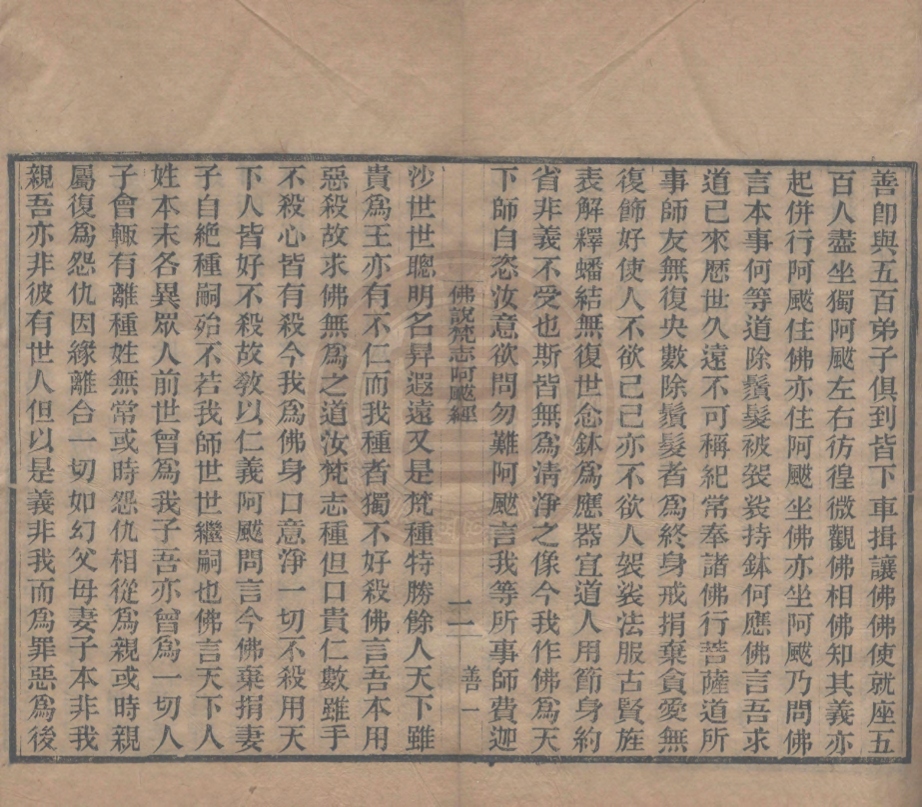 善卽與五百弟子俱到皆下車揖讓佛佛使就座五
百人盡坐獨阿䬷左右彷徨微觀佛相佛知其義亦
起併行阿䬷住佛亦住阿䬷坐佛亦坐阿䬷乃問佛
言本事何等道除鬚髮被袈裟持鉢何應佛言吾求
道已來歷世久遠不可稱紀常奉諸佛行菩薩道所
事師友無復央數除鬚髮者爲終身戒捐棄貪愛無
復飾好使人不欲己己亦不欲人袈裟法服古賢旌
表解釋蟠結無復世念鉢爲應器宜道人用節身約
省非義不受也斯皆無爲清淨之像今我作佛爲天
下師自恣汝意欲問勿難阿䬷言我等所事師費迦
佛說梵志阿䬷經 二 善一
沙世世聰明名昇遐遠又是梵種特勝餘人天下雖
貴爲王亦有不仁而我種者獨不好殺佛言吾本用
惡殺故求佛無爲之道汝梵志種但口貴仁數雖手
不殺心皆有殺今我爲佛身口意淨一切不殺用天
下人皆好不殺故敎以仁義阿䬷問言今佛棄捐妻
子自絕種嗣殆不若我師世世繼嗣也佛言天下人
姓本末各異眾人前世曾爲我子吾亦曾爲一切人
子會輙有離種姓無常或時怨仇相從爲親或時親
屬復爲怨仇因緣離合一切如幻父母妻子本非我
親吾亦非彼有世人但以是義非我而爲罪惡爲後